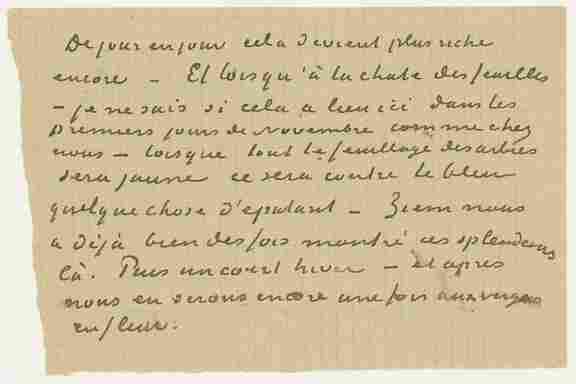 De jour en jour cela devient plus riche
encore – Et lorsqu'à la chute des feuilles
– je ne sais si cela a lieu ici dans les
premiers jours de novembre comme chez
nous – lorsque tout le feuillage des arbres
sera jaune ce sera contre le bleu
quelque chose d'épatant – Ziem nous
a déjà bien des fois montré ces splendeurs
là. Puis un court hiver – et après
nous en serons encore une fois aux vergers
en fleur.